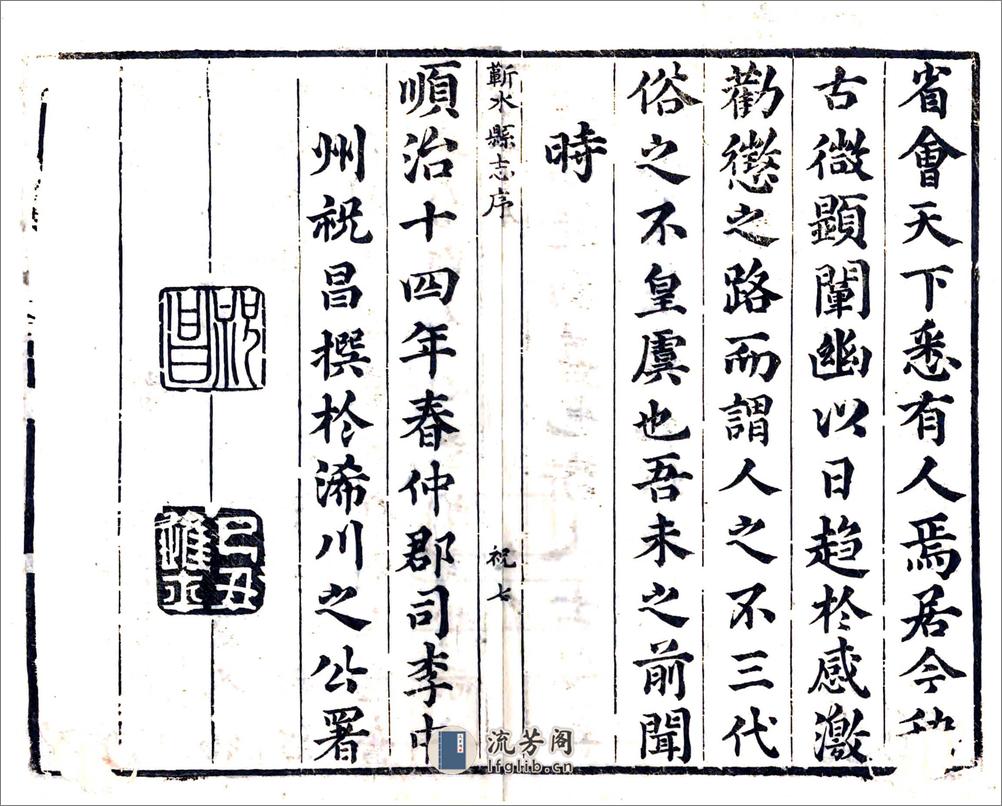 省會天下悉有人焉居今
古微顯闡幽以日趍於感激
勸懲之路而謂人之不三代
俗之不皇虞也吾未之前聞
時
蘄水縣志序
祝七
順治十四年春仲郡司李中
州祝昌撰於浠川之公署
祝昌
己丑進士
流芳阁
lfglib.cn